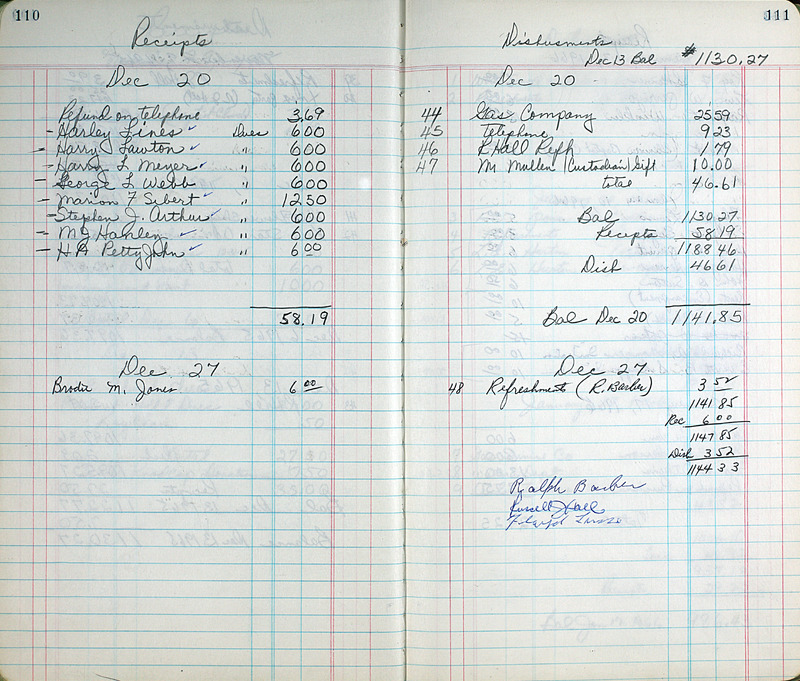 110
Receipts
Dec 20
Refund on telephone 3.69
- Harley Fines ✓ Dues 6 00
- Harry Lawton ✓ " 6 00
- Harry L Meyer ✓ " 6 00
- George L Webb " 6 00
- Marion F Sibert ✓ " 12 50
- Stephen J. Arthur ✓ " 6 00
- M J Hanley ✓ " 6 00
- H A PettyJohn ✓ " 6 00
58.19
Dec 27
Brodie M. Jones 6 00
111
Disbusments
Dec 13 Bal $1130.27
Dec 20
44 Gas Company 25 59
45 Telephone 9 23
46 R Hall Refh 1 79
47 Mc Mullen (Custodian) Gift 10.00
total 46.61
Bal 1130 27
Receipts 58 19
1188 46
Dish 46 61
Bal Dec 20 1141.85
Dec 27
48 Refreshments (R. Barber) 3 52
1141 85
Rec 6 00
1147 85
Dish 3 52
1144 33
Ralph Barber
Russell J Hall
Floyd